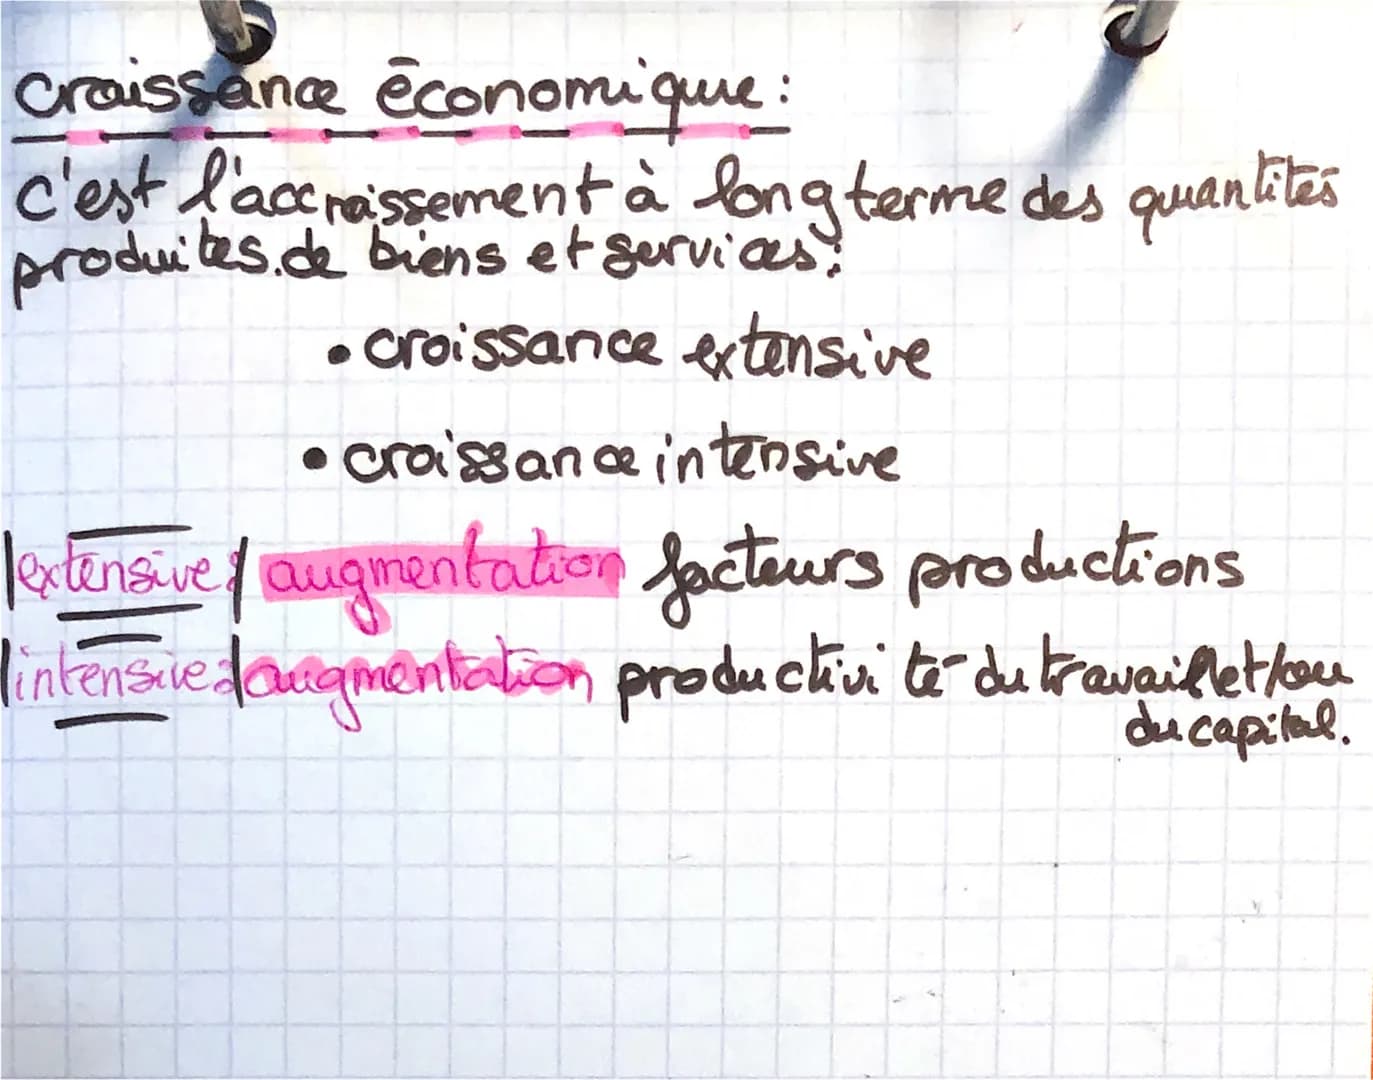 Croissance économique :
c'est l'accroissement à long terme des quantités
produites.de biens et services :
• croissance extensive
• croissance intensive
|extensive :| augmentation facteurs productions
|intensive :| augmentation productivité du travail et/ou
du capital.